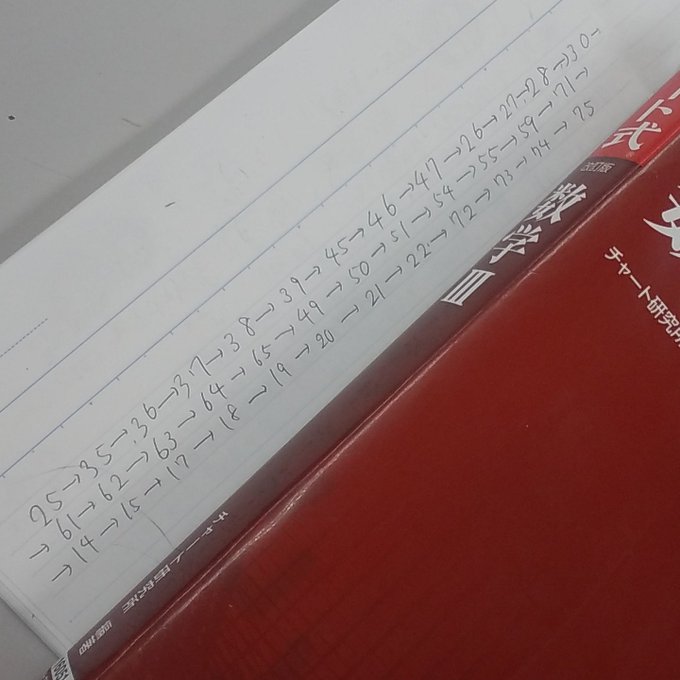 25→35→36→37→38→39→45→46→47→26→27→28→30→
→61→62→63→64→65→49→50→51→54→55→59→71→
→14→15→17→18→19→20→21→22→72→73→74→75
改訂版
数学 III
チャート研究所 編著
ト式
チャート研究所